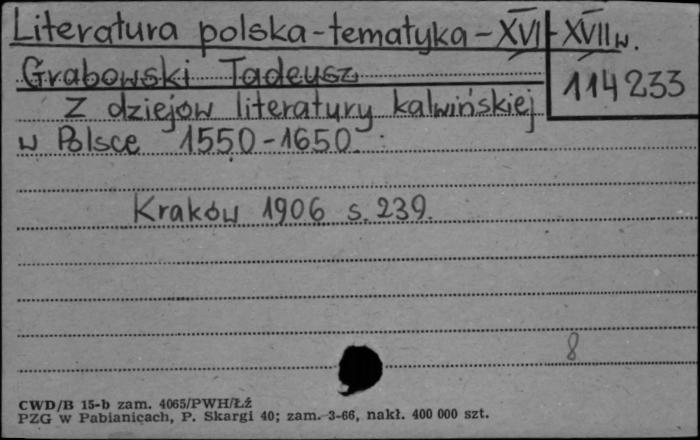 Literatura polska-tematyka-XVI-XVII w.
Grabowski Tadeusz
114233
Z dziejów literatury kalwińskiej
w Polsce 1550-1650.
Kraków 1906 s. 239.
8
CWD/B 15-b zam. 4065/PWH/Łż
PZG w Pabianicach, P. Skargi 40; zam. 3-66, nakł. 400 000 szt.